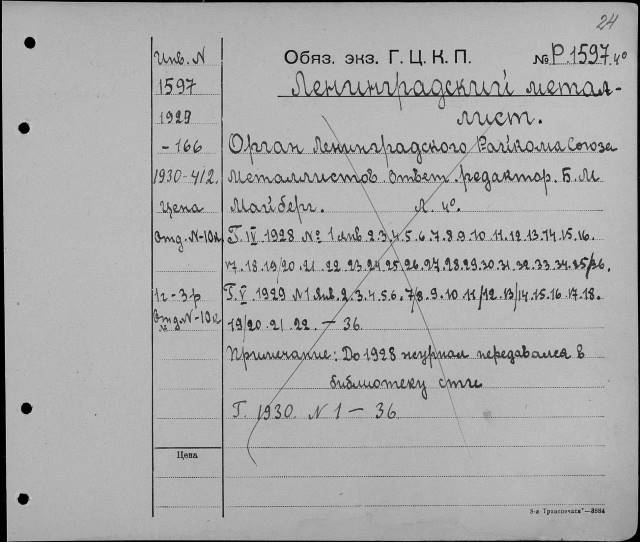 24
Инв. N
Обяз. экз. Г. Ц. К. П. № Р.1597. 4º
1597
Ленинградский метал-
1929
лист.
-166
Орган Ленинградского Райкома Союза
1930-412.
Металлистов. Ответ. редактор. Б. М
Цена
Майберг. Л. 4º.
Отд. N-10к
Г. IV 1928 № 1 янв 2.3.4.5.6.7.8.9.10 11.12.13.14.15.16.
17.18.19/20.21.22.23.24.25.26.27.28.29.30.31.32.33.34.35/36.
1г-3р
Г. V 1929 N 1 янв. 2.3.4.5.6.7/8.9.10 11/12.13/14.15.16.17.18.
Отд. N-10к
19/20.21.22.-36.
Примечание: До 1928 журнал передавался в
библиотеку
Г. 1930. N 1-36.
Цена
3884